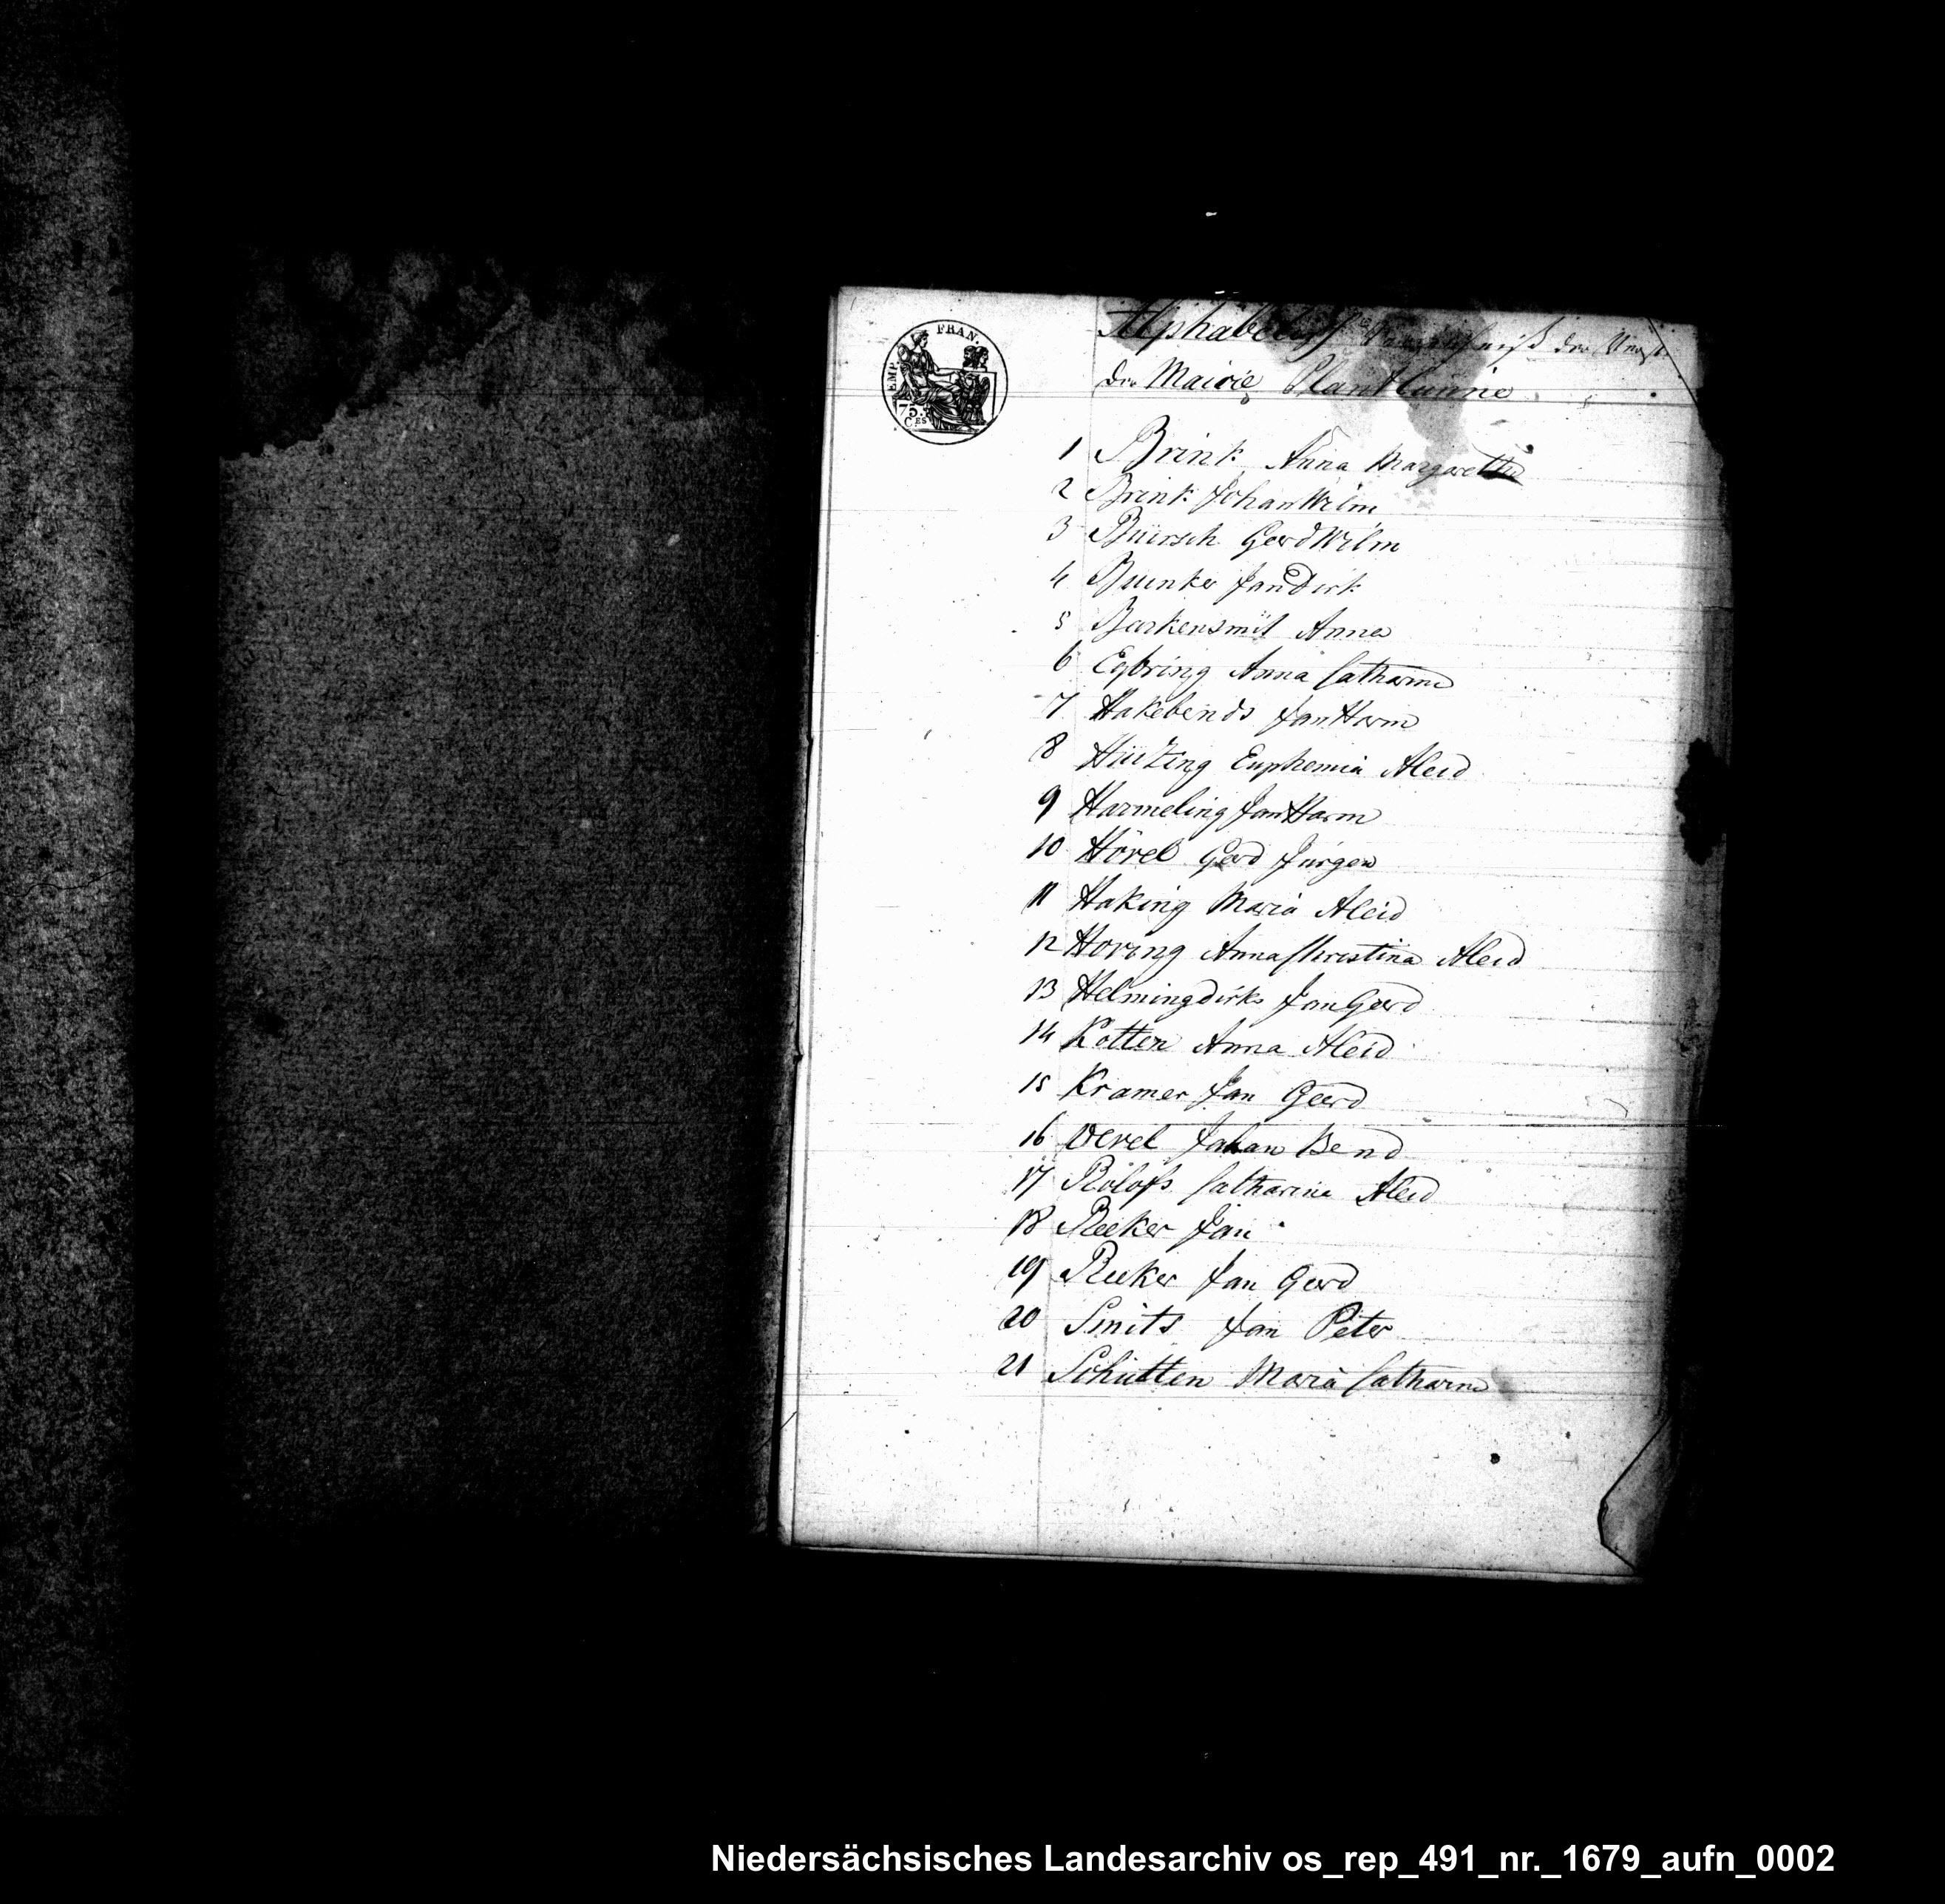 EMP. FRAN.
75.
CES
Alphabetisch Verzeichniß der
der Mairie Plantlünne
1 Brink Anna Margaretha
2 Brink Johan Wilm
3 Büirsch Gerd Wilm
4 Buunker Jan Dirk
5 Barkensmit Anna
6 Egbring Anna Catharina
7 Hakebends Jan Harm
8 Euphemia Aleid
9 Harmeling Jan Harm
10 Hörel Gerd Jurgen
11 Haking Maria Aleid
12 Hoving Anna Christina Aleid
13 Helmingdirks Jan Gerd
14 Kotten Anna Aleid
15 Kramer Jan Geerd
16 Overel Johan Bend
17 Rolofs Catharina Aleid
18 Reeker Jan
19 Reeker Jan Gerd
20 Smits Jan Peter
21 Schutten Maria Catharina
Niedersächsisches Landesarchiv os_rep_491_nr._1679_aufn_0002